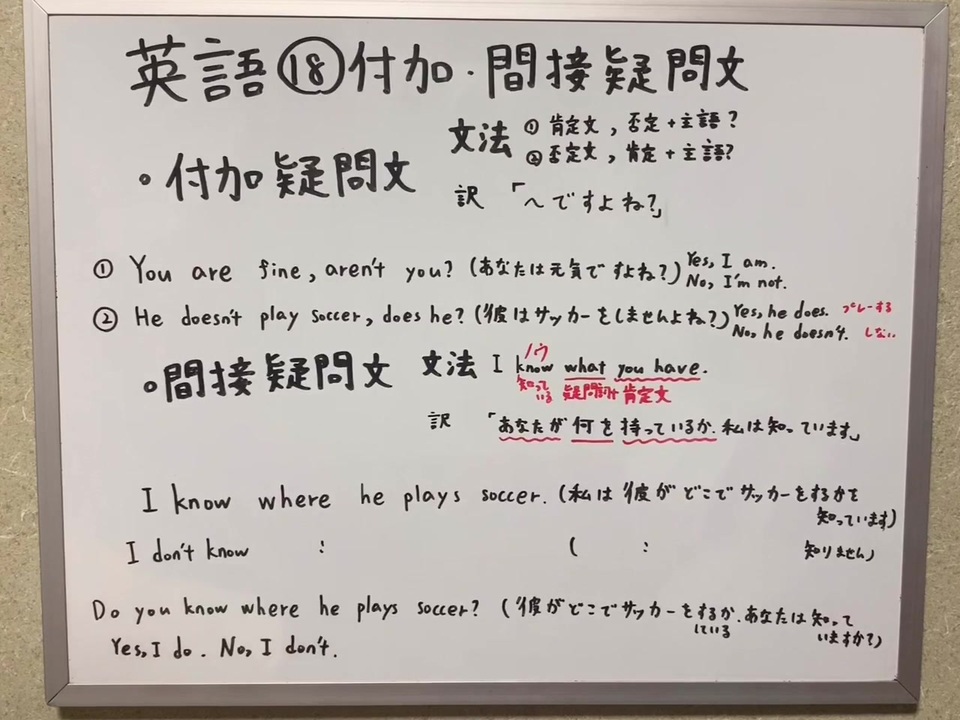 英語⑱付加・間接疑問文
・付加疑問文
文法 ① 肯定文, 否定+主語?
② 否定文, 肯定+主語?
訳 「～ですよね?」
① You are fine, aren't you? (あなたは元気ですよね?) Yes, I am.
No, I'm not.
② He doesn't play soccer, does he? (彼はサッカーをしませんよね?) Yes, he does. プレーする
No, he doesn't. しない
・間接疑問文 文法 I know what you have.
ノウ
知っている 疑問詞 肯定文
訳 「あなたが何を持っているか、私は知っています」
I know where he plays soccer. (私は彼がどこでサッカーをするかを
知っています)
I don't know : ( : 知りません)
Do you know where he plays soccer? (彼がどこでサッカーをするか、あなたは知って
している いますか?)
Yes, I do. No, I don't.